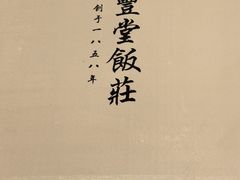 豐堂飯莊
創于一八五八年